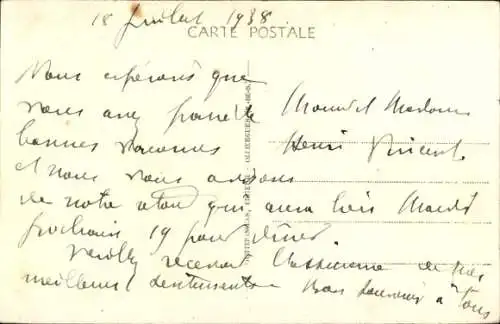 18 Juillet 1938
CARTE POSTALE
Nous espérons que
vous avez passé de
bonnes vacances
et nous vous avisons
de notre retour qui aura lieu Mardi
prochain 19 pour dîner.
Veuillez recevoir l'assurance de nos
meilleurs sentiments Bon souvenir à tous
Monsieur et Madame
Henri Vincent